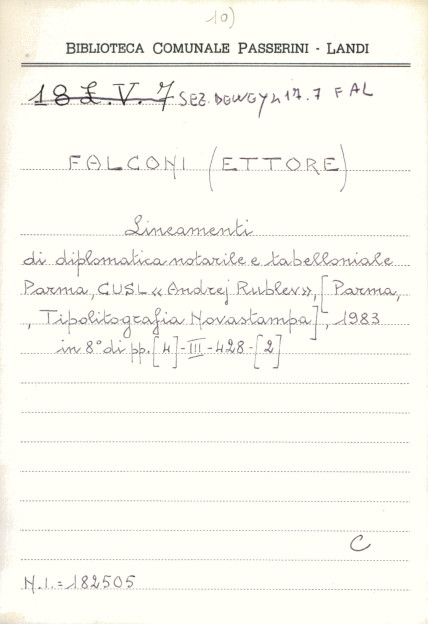 10)
BIBLIOTECA COMUNALE PASSERINI - LANDI
18 L.V.7 SEZ. DEWEY 417.7 FAL
FALCONI (ETTORE)
Lineamenti
di diplomatica notarile e tabelloniale
Parma, CUSL «Andrej Rublev», [Parma,
, Tipolitografia Novastampa], 1983
in 8° di pp. [4]-III-428-[2]
C
N.I.=182505